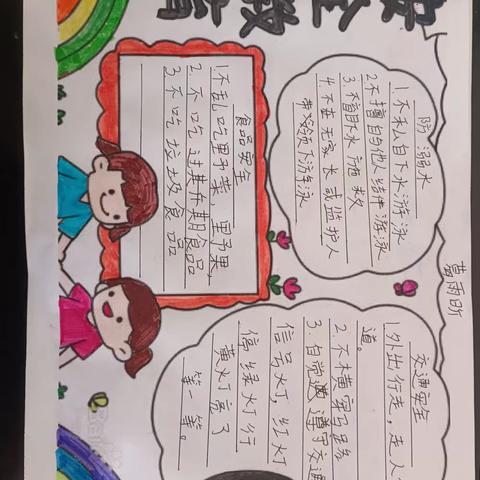 安全教育
食品安全
1.不乱吃野菜、野果
2.不吃过期食品
3.不吃垃圾食品
防溺水
1.不私自下水游泳
2.不擅自与他人结伴游泳
3.不盲目下水施救
4.不在无家长或监护人
带领下游泳
葛雨昕
交通安全
1.外出行走,走人
道。
2.不横穿马路
3.自觉遵守交通
信号灯,红灯
停绿灯行
黄灯亮了
等一等。